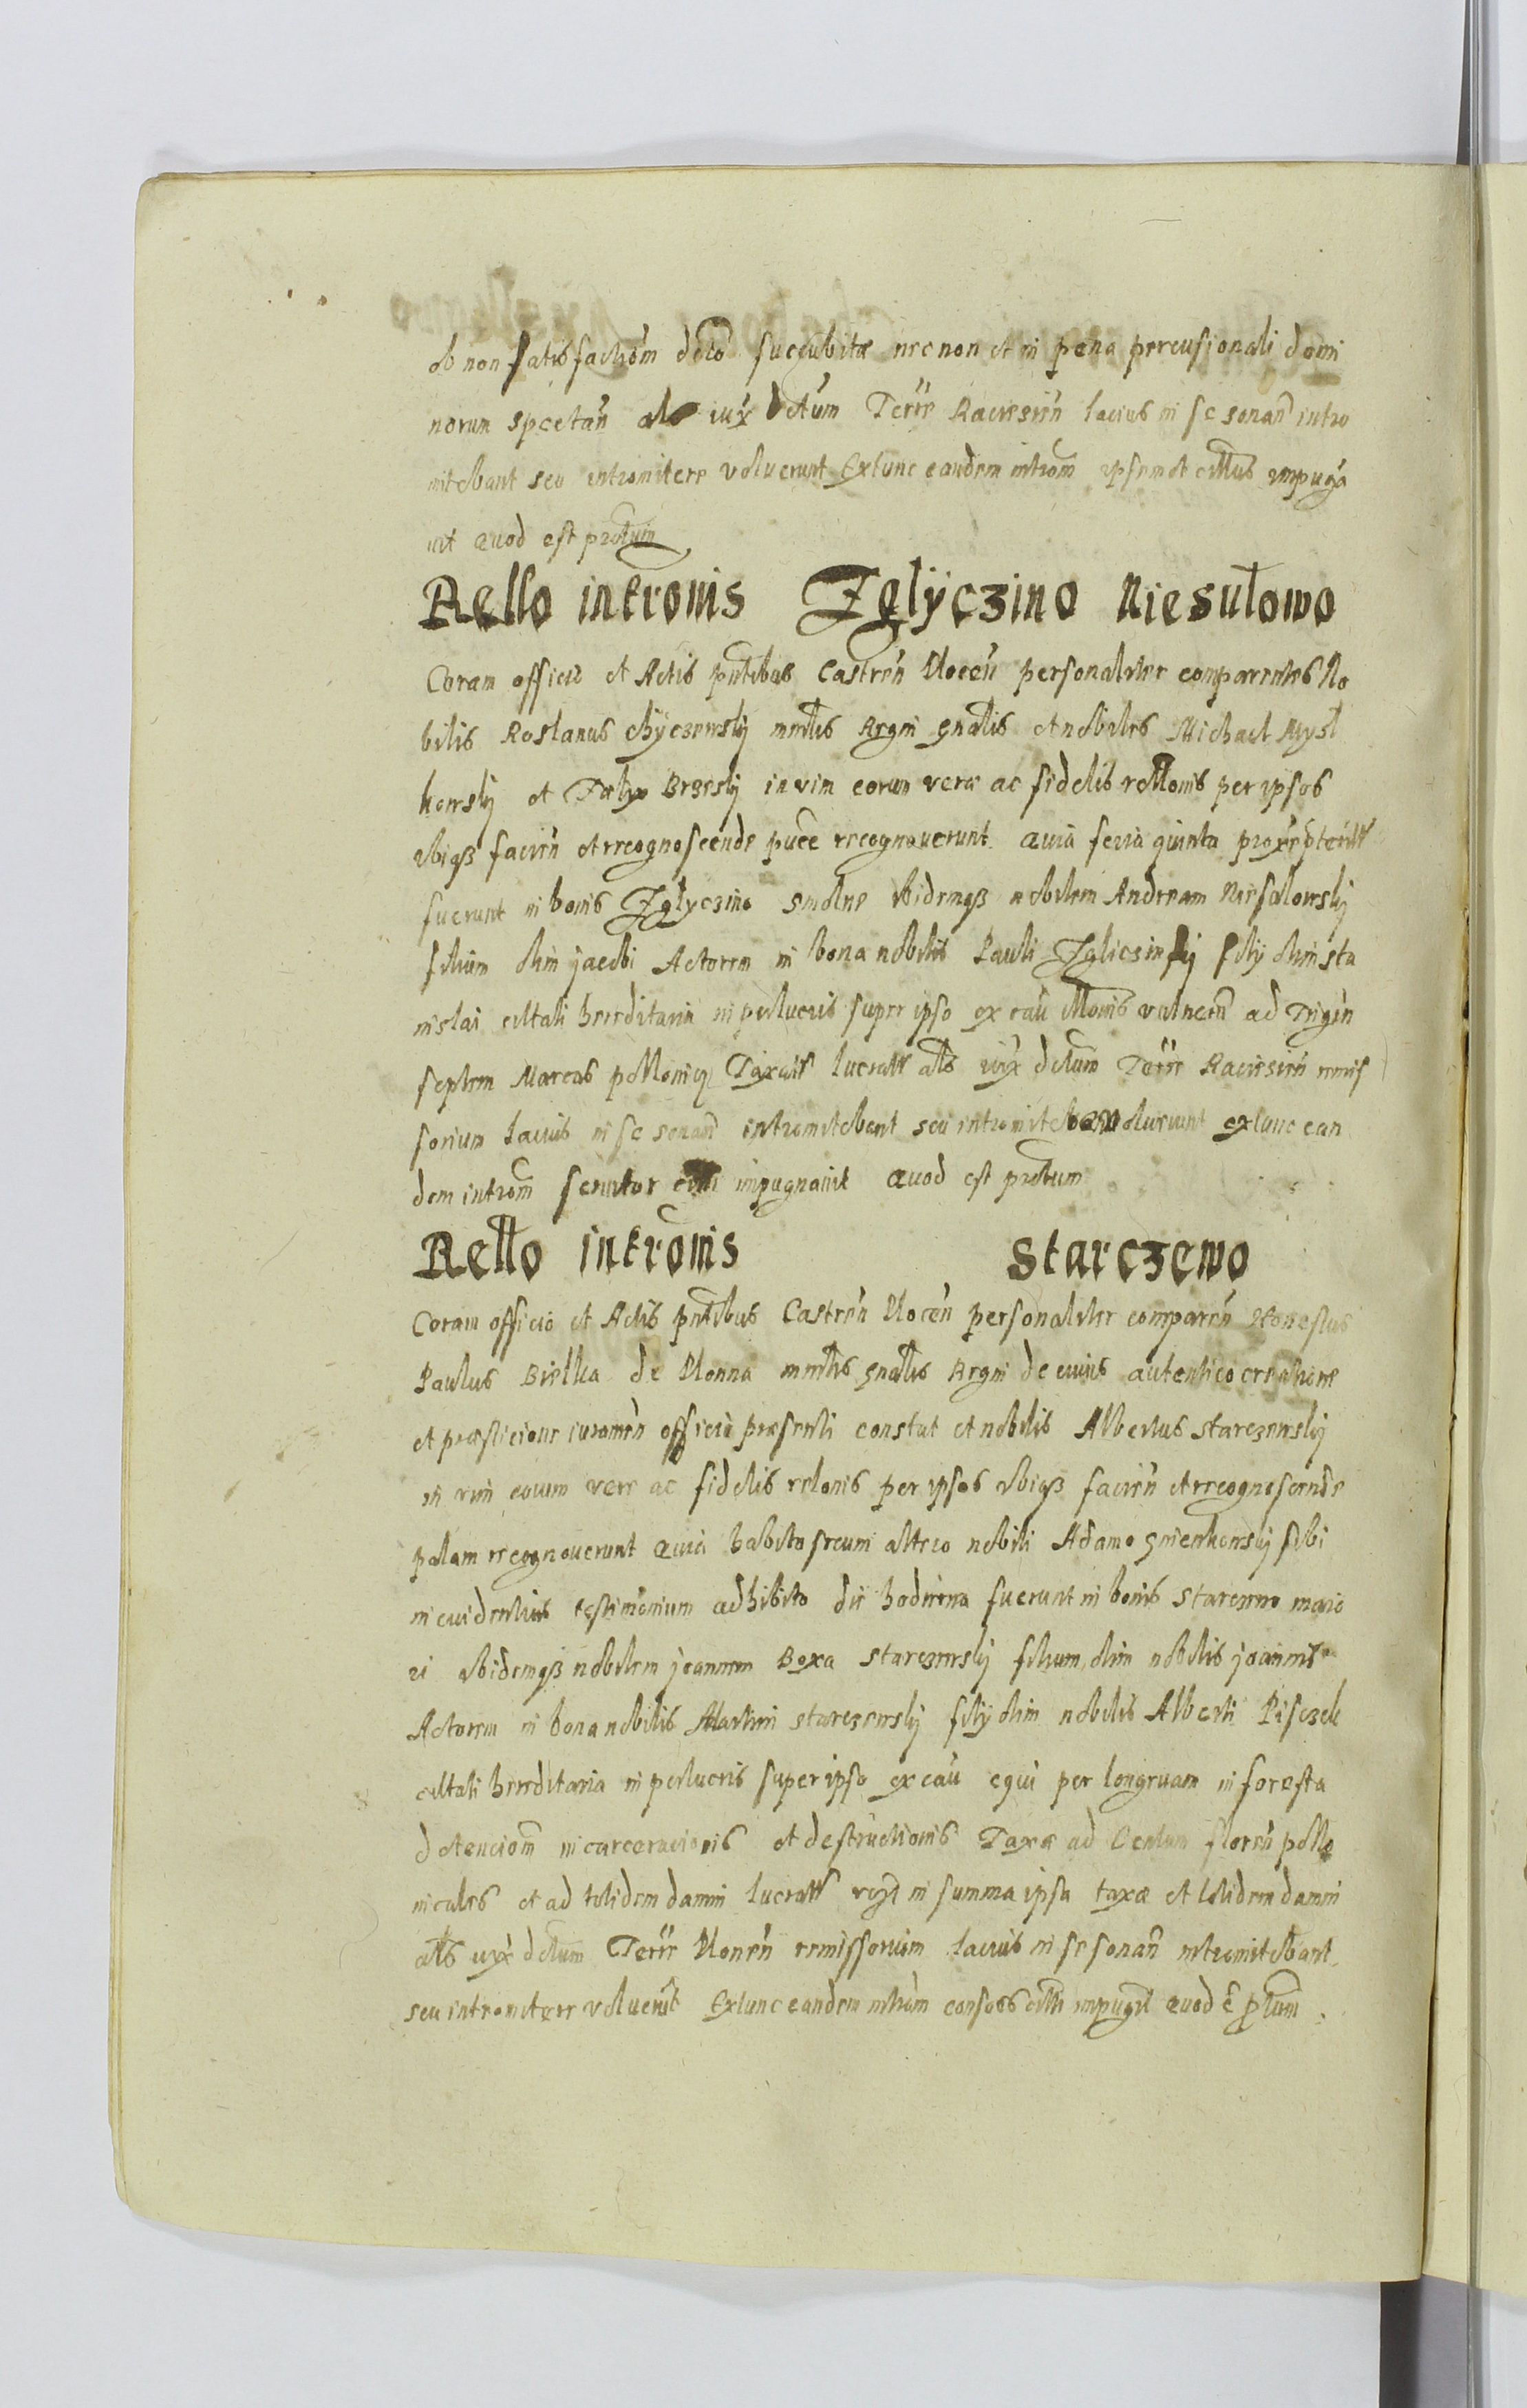 ob non satisfactiom dcto succubitæ nec non et in pena percusionali domi
norum spectan als iux dctum Terre Raciesien lacius in se sonan intro
mitebant seu intromitere voluerunt Extunc eandem introm ipsemet cittus impuga
uit quod est protum
Rello intromis Zglÿczino Niesułowo
Coram officio et Actis pntibus Castren Plocen personaliter comparentes No
bilis Roslanus Chÿczewskij mnrlis Regni gnalis et nobiles Michael Mysl
kowskij et Felix Brzeskij in vim eorum vere ac fidelis rellonis per ipsos
ubiqз facien et recognoscende puce recognouerunt quia feria quinta prox pterita
fuerunt in bonis Zglyczino Smolne ibidemqз nobilem Andream Niesulowskij
filium olim jacobi Actorem in bona nobilis Pauli Zgliczinskij filij olim Sta
nislai cittati hereditaria in perlucris super ipso ex cau illonis vulnerum ad Trigin
septem Marcas pollonicas Taxatis lucratis als iux dctum Terre Raciesien remis
sorium lacius in se sonan intromitebant seu intromitere voluerunt extunc ean
dem introm seruitor citti impugnauit quod est protum
Rello intromis Starczewo
Coram officio et Actis pntibus Castren Plocen personaliter comparen Honestus
Paulus Bielka de Plonna mnrlis gnalis Regni de cuius autentico creatione
et præsticione iuramen officio præsenti constat et nobilis Albertus Starczewskij
in vim eorum vere ac fidelis relonis per ipsos ubiqз facien et recognoscende
palam recognouerunt quia habito secum altero nobili Adamo Gnienkowskij sibi
in euidentius testimonium adhibito die hodierna fuerunt in bonis Starczewo maio
ri ibidemqз nobilem joannem Boxa Starczewskij filium olim nobilis joannis
Actorem in bona nobilis Martini Starczewskij filij olim nobilis Alberti Pisczek
cittati hereditaria in perlucris super ipso ex cau equi per longeuam in foresta
detenciom incarceracionis et destructionis Taxæ ad Centum floren pollo
nicales et ad totidem damni lucratis in summa ipsa taxæ et totidem damni
als iux dctum Terre Plonen remissorium lacius in se sonan intromitebant
seu intromitere voluerut Extunc eandem introm consors citti impugit quod e ptum